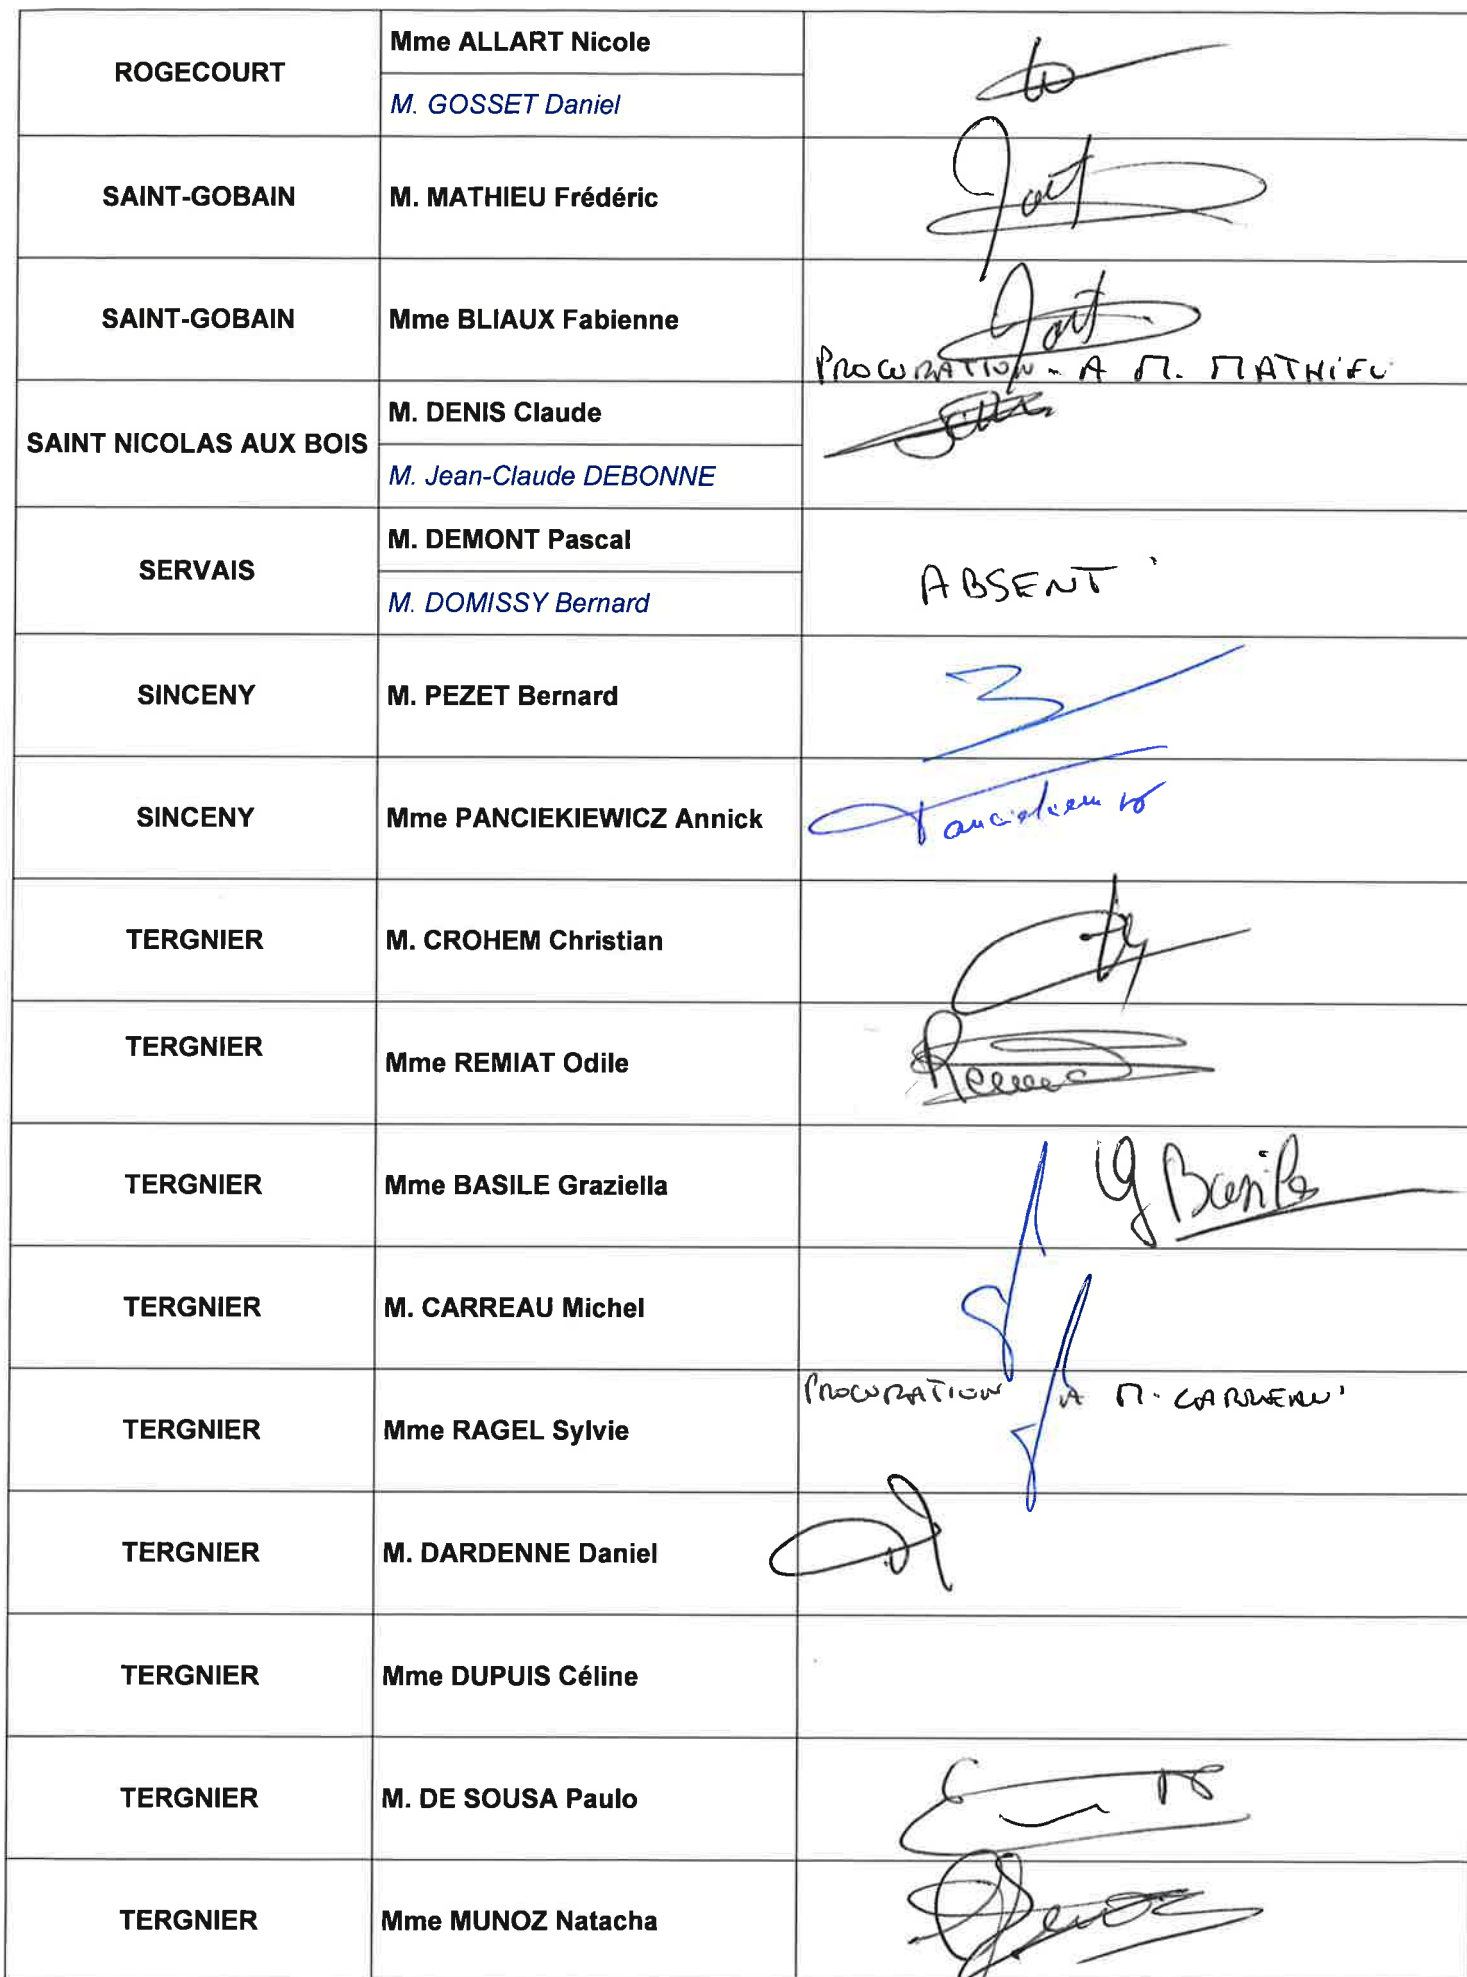 ROGECOURT
Mme ALLART Nicole
M. GOSSET Daniel
SAINT-GOBAIN
M. MATHIEU Frédéric
SAINT-GOBAIN
Mme BLIAUX Fabienne
PROCURATION - A M. MATHIEU
SAINT NICOLAS AUX BOIS
M. DENIS Claude
M. Jean-Claude DEBONNE
SERVAIS
M. DEMONT Pascal
M. DOMISSY Bernard
ABSENT
SINCENY
M. PEZET Bernard
SINCENY
Mme PANCIEKIEWICZ Annick
TERGNIER
M. CROHEM Christian
TERGNIER
Mme REMIAT Odile
TERGNIER
Mme BASILE Graziella
G Basile
TERGNIER
M. CARREAU Michel
TERGNIER
Mme RAGEL Sylvie
PROCURATION A M. CARREAU
TERGNIER
M. DARDENNE Daniel
TERGNIER
Mme DUPUIS Céline
TERGNIER
M. DE SOUSA Paulo
TERGNIER
Mme MUNOZ Natacha